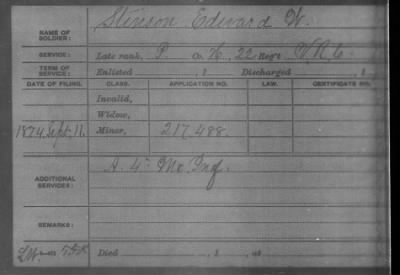 NAME OF SOLDIER: Stinson Edward W.
SERVICE: Late rank, P Co. K, 22 Reg't V.R.C.
TERM OF SERVICE: Enlisted , 1 Discharged , 1
DATE OF FILING. CLASS. APPLICATION NO. LAW. CERTIFICATE NO.
Invalid,
Widow,
1874 Sept. 11. Minor, 217.488.
ADDITIONAL SERVICES: A. 4" Me Inf.
REMARKS:
Died , 1 , at